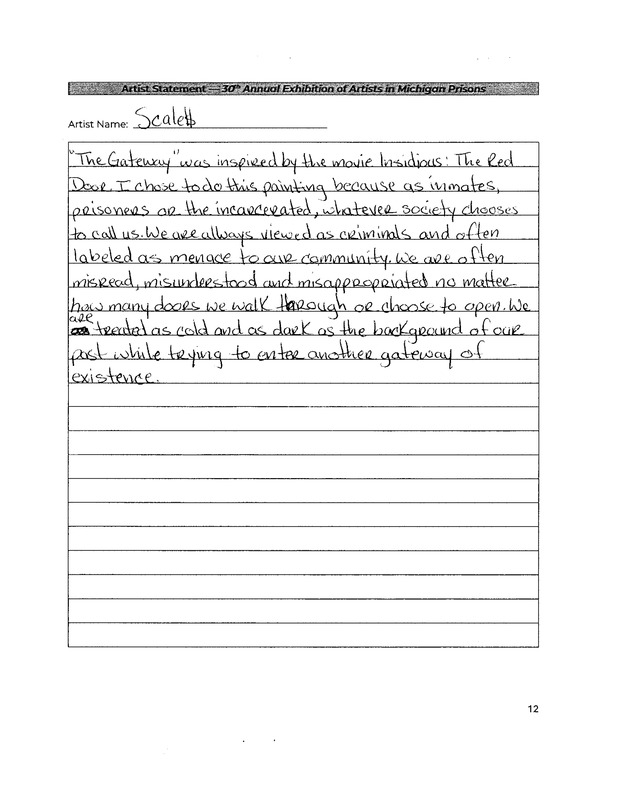 Artist Statement — 30th Annual Exhibition of Artists in Michigan Prisons
Artist Name: Scale$
"The Gateway" was inspired by the movie Insidious: The Red
Door. I chose to do this painting because as inmates,
prisoners or the incarcerated, whatever society chooses
to call us. We are always viewed as criminals and often
labeled as menace to our community. We are often
misread, misunderstood and misappropriated no matter
how many doors we walk through or choose to open. We
are
treated as cold and as dark as the background of our
past while trying to enter another gateway of
existence.
12